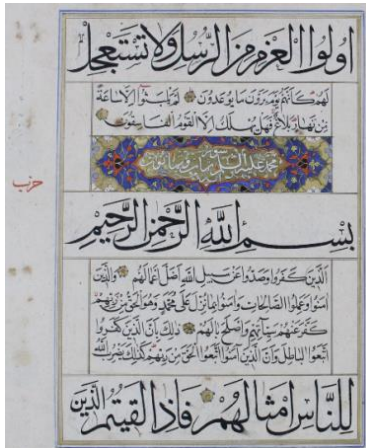 اولوا العزم من الرسل ولا تستعجل
لهم كانهم يوم يرون ما يوعدون لم يلبثوا الا ساعة
من نهار بلاغ فهل يهلك الا القوم الفاسقون
محمد عليه السلام
حزب
بسم الله الرحمن الرحيم
الذين كفروا وصدوا عن سبيل الله اضل اعمالهم والذين
امنوا وعملوا الصالحات وامنوا بما نزل على محمد وهو الحق من ربهم
كفر عنهم سيئاتهم واصلح بالهم ذلك بان الذين كفروا
اتبعوا الباطل وان الذين امنوا اتبعوا الحق من ربهم كذلك يضرب الله
للناس امثالهم فاذا لقيتم الذين